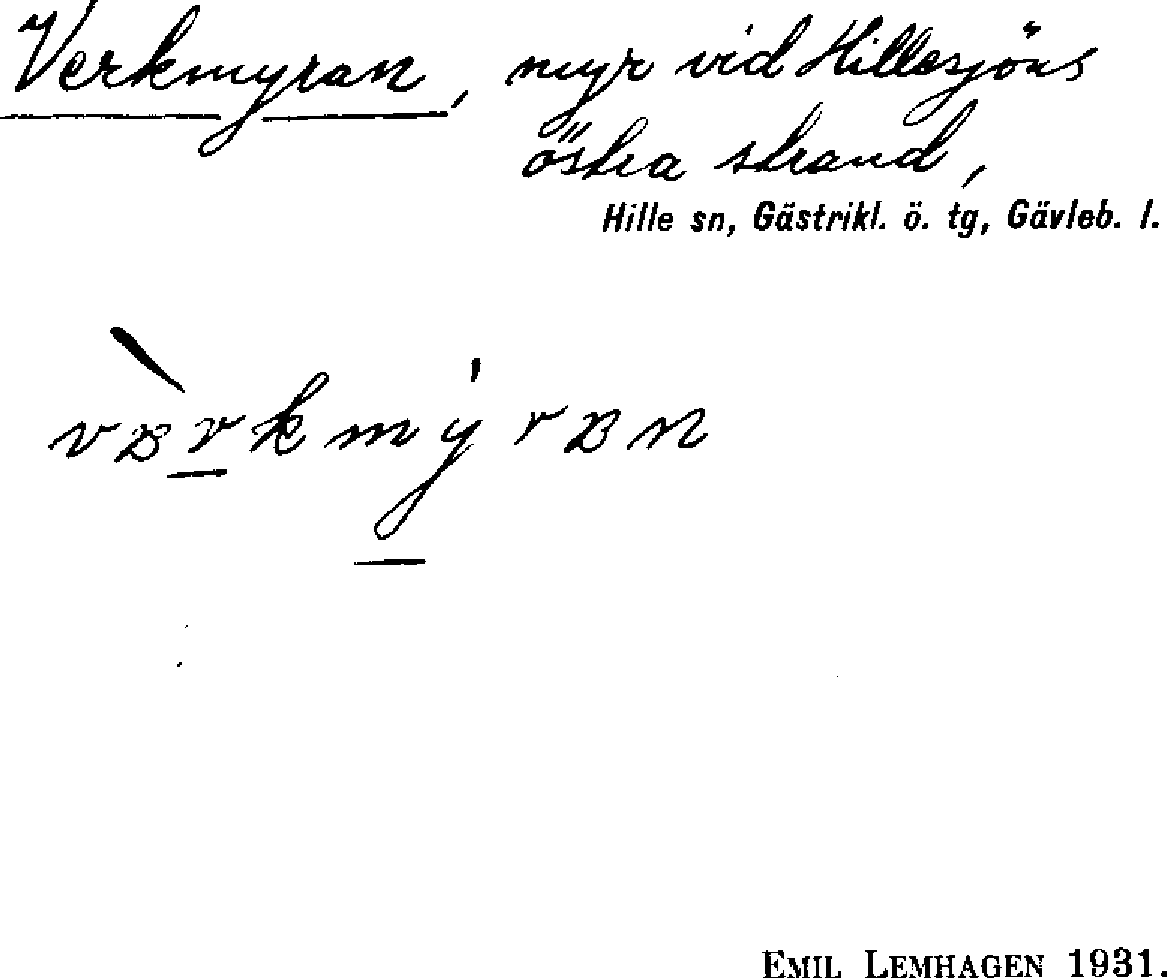 Verkmyran, myr vid Hillesjöns
östra strand,
Hille sn, Gästrikl. ö. tg, Gävleb. l.
EMIL LEMHAGEN 1931.